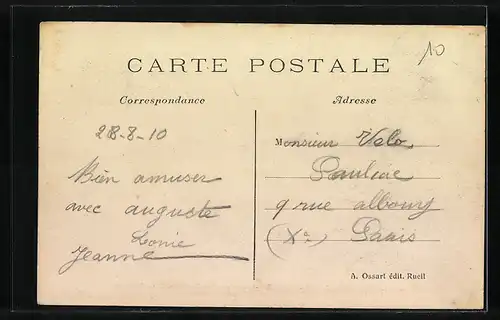 10
CARTE POSTALE
Correspondance
Adresse
28-8-10
Bien amuser
avec auguste
Jeanne
Monsieur Velo
9 rue albouy
(Xe) Paris
A. Ossart édit. Rueil